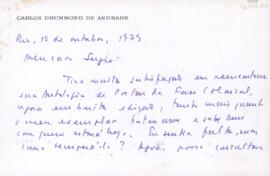 CARLOS DRUMMOND DE ANDRADE
Rio, 10 de outubro, 1979
Meu caro Sergio:
Tive muita satisfação em reencontrar
sua Antologia de Poetas da Fase Colonial,
agora em bonita edição, tanto mais quanto
o meu exemplar batera asas e sabe Deus
com quem estará hoje. Eu sentia falta, mas
como recuperá-lo? Agora, posso consultar